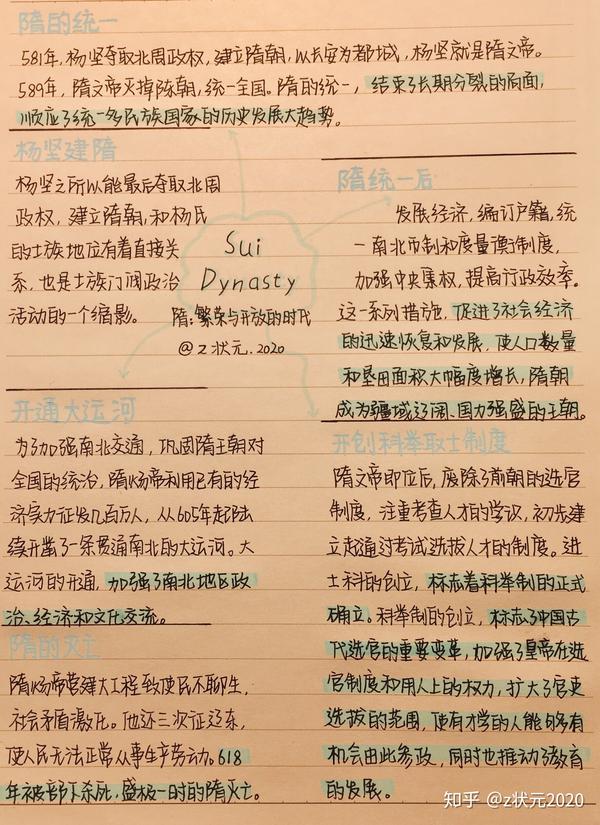 隋的统一
581年，杨坚夺取北周政权，建立隋朝，以长安为都城，杨坚就是隋文帝。
589年，隋文帝灭掉陈朝，统一全国。隋的统一，结束了长期分裂的局面，
顺应了统一多民族国家的历史发展大趋势。
杨坚建隋
杨坚之所以能最后夺取北周
政权，建立隋朝，和杨氏
的士族地位有着直接关
系，也是士族门阀政治
活动的一个缩影。
Sui
Dynasty
隋：繁荣与开放的时代
@z状元.2020
隋统一后
发展经济，编订户籍，统
一南北币制和度量衡制度，
加强中央集权，提高行政效率。
这一系列措施，促进了社会经济
的迅速恢复和发展，使人口数量
和垦田面积大幅度增长，隋朝
成为疆域辽阔、国力强盛的王朝。
开通大运河
为了加强南北交通，巩固隋王朝对
全国的统治，隋炀帝利用已有的经
济实力征发几百万人，从605年起陆
续开凿了一条贯通南北的大运河。大
运河的开通，加强了南北地区政
治、经济和文化交流。
隋的灭亡
隋炀帝营建大工程致使民不聊生，
社会矛盾激化。他还三次征辽东，
使人民无法正常从事生产劳动。618
年被部下杀死，盛极一时的隋灭亡。
开创科举取士制度
隋文帝即位后，废除了前朝的选官
制度，注重考查人才的学识，初步建
立起通过考试选拔人才的制度。进
士科的创立，标志着科举制的正式
确立。科举制的创立，标志了中国古
代选官的重要变革，加强了皇帝在选
官制度和用人上的权力，扩大了官吏
选拔的范围，使有才学的人能够有
机会由此参政，同时也推动了教育
的发展。
知乎 @z状元2020